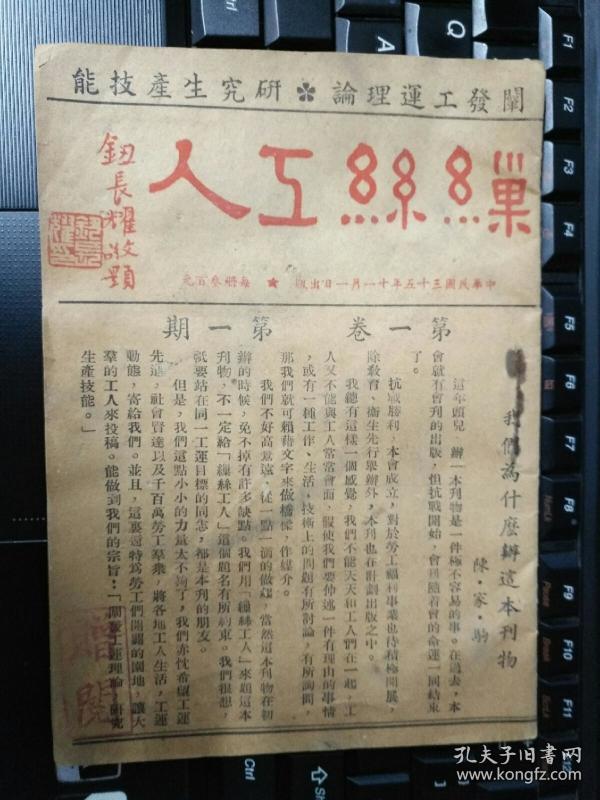 闡發工運理論 ✽ 研究生產技能
繅絲工人
鈕長耀敬題
中華民國三十五年十一月一日出版 ★ 每册叁百元
第一卷 第一期
我們為什麽辦這本刊物
陳·家·駒
這年頭兒，辦一本刊物是一件極不容易的事。在過去，本
會就有會刊的出版，但抗戰開始，會刊隨着會的命運一同結束
了。
抗戰勝利，本會成立，對於勞工福利事業也待積極開展，
除教育、衛生先行舉辦外，本刊也在計劃出版之中。
我總有這樣一個感覺，我們不能天天和工人們在一起，工
人又不能與工人常常會面，假使我們要伸述一件有理由的事情
，或有一種工作、生活，技術上的問題有所討論，有所詢問，
那我們就可賴藉文字來做橋樑，作媒介。
我們不好高騖遠，從一點一滴的做起，當然這本刊物在初
辦的時候，免不掉有許多缺點。我們用「繅絲工人」來題這本
刊物，不一定給「繅絲工人」這個題名有所約束。我們很想，
祇要站在同一工運目標的同志，都是本刊的朋友。
但是，我們這點小小的力量太不夠了，我們赤忱希望工運
先進，社會賢達以及千百萬勞工羣衆，將各地工人生活，工運
動態，寄給我們。並且，這裏還特為勞工們開闢的園地，讓大
羣的工人來投稿。能做到我們的宗旨：「闡發工運理論，研究
生產技能。」
閱
F1
F2
F3
F4
F5
F6
F7
F8
F9
F10
F11
Ctrl
孔夫子旧書网
www.kongfz.com